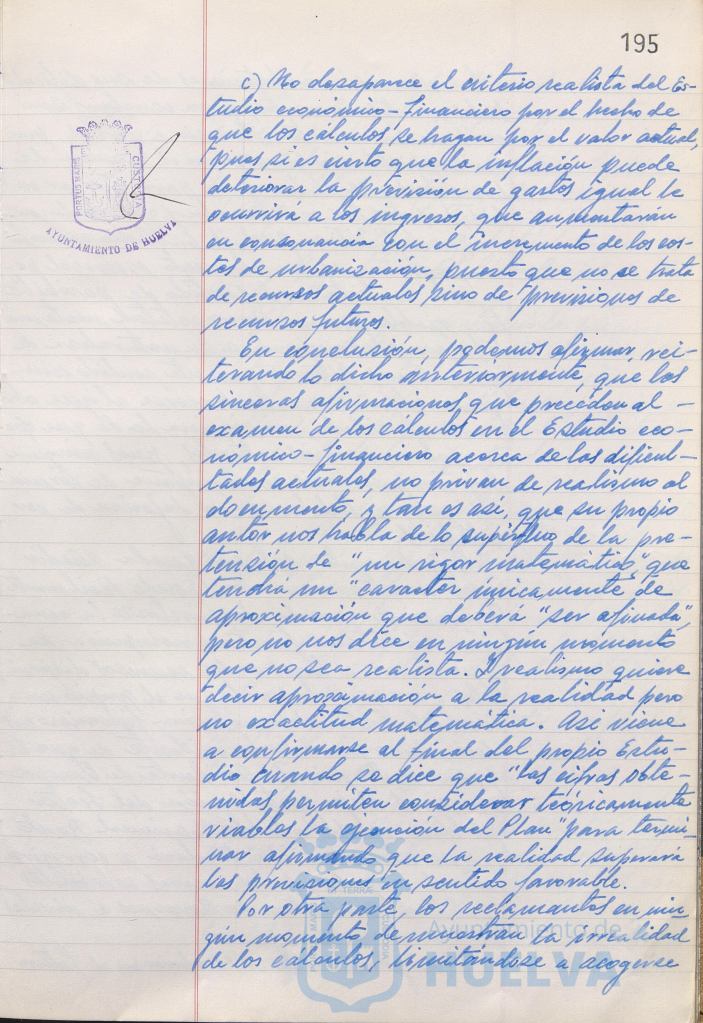 195
c) No desaparece el criterio realista del Es-
tudio económico-financiero por el hecho de
que los cálculos se hagan por el valor actual,
pues si es cierto que la inflación puede
deteriorar la previsión de gastos igual le
ocurrirá a los ingresos, que aumentarán
en consonancia con el incremento de los cos-
tes de urbanización, puesto que no se trata
de recursos actuales sino de previsiones de
recursos futuros.
En conclusión, podemos afirmar, rei-
terando lo dicho anteriormente, que las
sinceras afirmaciones que preceden al -
examen de los cálculos en el Estudio eco-
nómico-financiero acerca de las dificul-
tades actuales, no privan de realismo al
documento, y tan es así, que su propio
autor nos habla de lo superfluo de la pre-
tensión de "un rigor matemático," que
tendrá un "caracter únicamente de
aproximación que deberá "ser afinada",
pero no nos dice en ningún momento
que no sea realista. Y realismo quiere
decir aproximación a la realidad pero
no exactitud matemática. Así viene
a confirmarse al final del propio Estu-
dio cuando se dice que "las cifras obte-
nidas permiten considerar teóricamente
viables la ejecución del Plan" para termi-
nar afirmando que la realidad superará
las previsiones en sentido favorable.
Por otra parte, los reclamantes en nin
gún momento demuestran la irrealidad
de los cálculos, limitándose a acogerse
PORTUS MARIS
CUSTODIA
AYUNTAMIENTO DE HUELVA
Ayuntamiento de
HUELVA